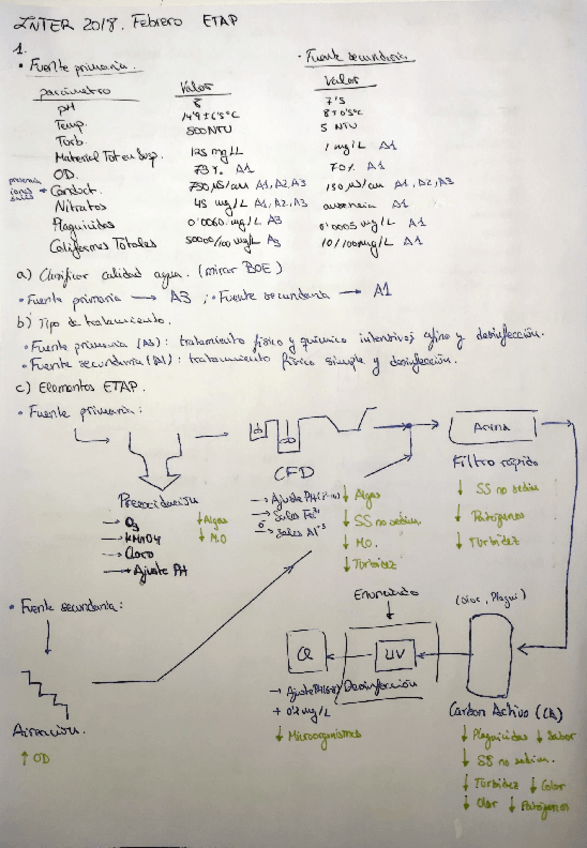 INTER 2018. Febrero ETAP
1.
• Fuente primaria. • Fuente secundaria
parámetro Valor Valor
pH 8 7'5
Temp. 14'9 ± 6'5ºC 8 ± 0'5ºC
Turb. 500 NTU 5 NTU
Material Tot en Susp. 125 mg/L 1 mg/L A1
OD. 73% A1 70% A1
presencia iones sales → Conduct. 750 µS/cm A1, A2, A3 150 µS/cm A1, A2, A3
Nitratos 45 mg/L A1, A2, A3 ausencia A1
Plaguicidas 0'0060 mg/L A3 0'0005 mg/L A1
Coliformes Totales 50000/100 mg/L A3 10/100 mg/L A1
a) Clasificar calidad agua. (mirar BOE)
• Fuente primaria → A3 ; • Fuente secundaria → A1
b) Tipo de tratamiento.
• Fuente primaria (A3): tratamiento físico y químico intensivos, afino y desinfección.
• Fuente secundaria (A1): tratamiento físico simple y desinfección.
c) Elementos ETAP.
• Fuente primaria:
Arena
CFD
Filtro rápido
Preoxidación
→ O3
→ KMnO4
→ Cloro
→ Ajuste PH
↓ Algas
↓ M.O
→ Ajuste PH
→ Sales Fe
ó
→ Sales Al
↓ Algas
↓ SS no sedim.
↓ M.O.
↓ Turbidez
↓ SS no sedim
↓ Patógenos
↓ Turbidez
• Fuente secundaria:
Aireación.
↑ OD
Enunciado
(olor, Plagui)
UV
Desinfección
→ Ajuste PH
+ 0'2 mg/L
↓ Microorganismos
Carbón Activo (CA)
↓ Plaguicidas ↓ Sabor
↓ SS no sedim.
↓ Turbidez ↓ Color
↓ Olor ↓ Patógenos